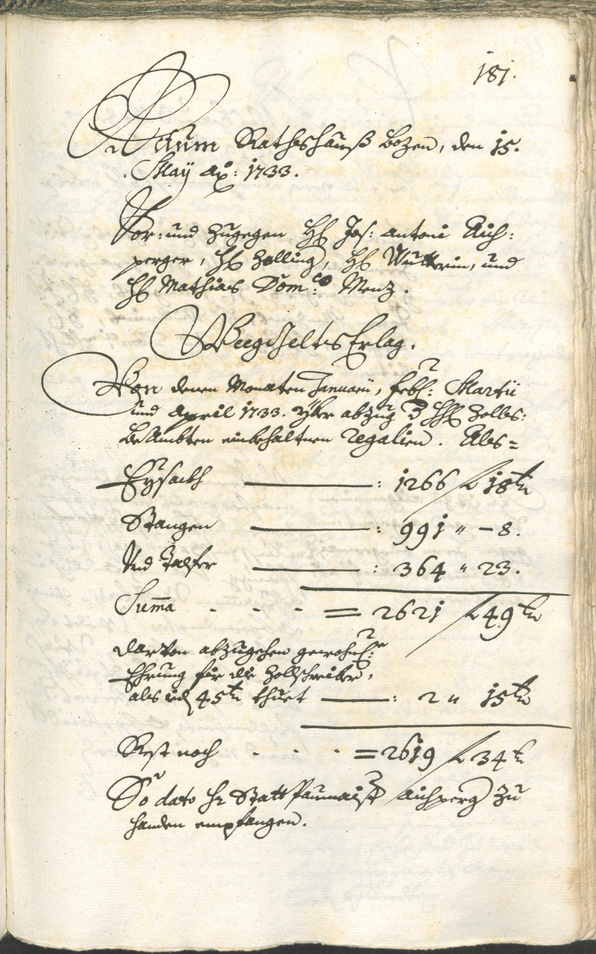 181.
Actum Rathshauß Bozen, den 15.
May ao: 1733.
Vor: und zugegen HH Jos: Antoni Aich:
perger, H Zalling, H und
H Mathias Dom:co Menz.
Weeggelts Erlag.
Von denen Monaten Januarii, Feb: Martii
und April 1733. yber abzug d HH Zolls:
Beambten einbehaltnen Regalien. Als=
Eysackh : 1266 f 18 kr
Stangen : 991 " - 8.
Und Talfer : 364 " 23.
Suma - - - = 2621 f 49 kr
darvon abzugehen gewohnl:
Ehrung für die Zollschreiber,
als id 45 kr thuet : 2 " 15 kr
Rest noch - - - = 2619 f 34 kr
So dato Hr Statt Paumaist Aichperg zu
handen empfangen.